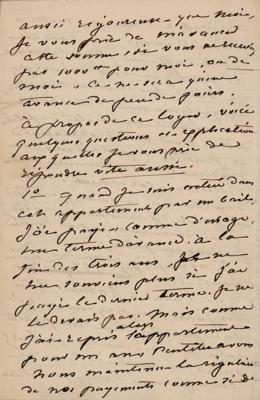 aussi rigoureux que moi,
Je vous prie de m'avancer
cette somme, si vous ne recevez
pas 1000 frs pour moi, ou de
moi. Ce ne sera qu'une
avance de peu de jours.
à propos de ce loyer, voici
quelques questions et explications
auxquelles je vous prie de
répondre vite aussi.
1º Quand je suis entrée dans
cet appartement par un bail,
J'ai payé, comme d'usage,
un terme d'avance. à la
fin des trois ans, je ne
me souviens plus si j'ai
payé le dernier terme. Je ne
le devais pas. Mais comme
J'ai repris alors l'appartement
pour un an,
nous maintenir la régularité
de nos payements comme si de